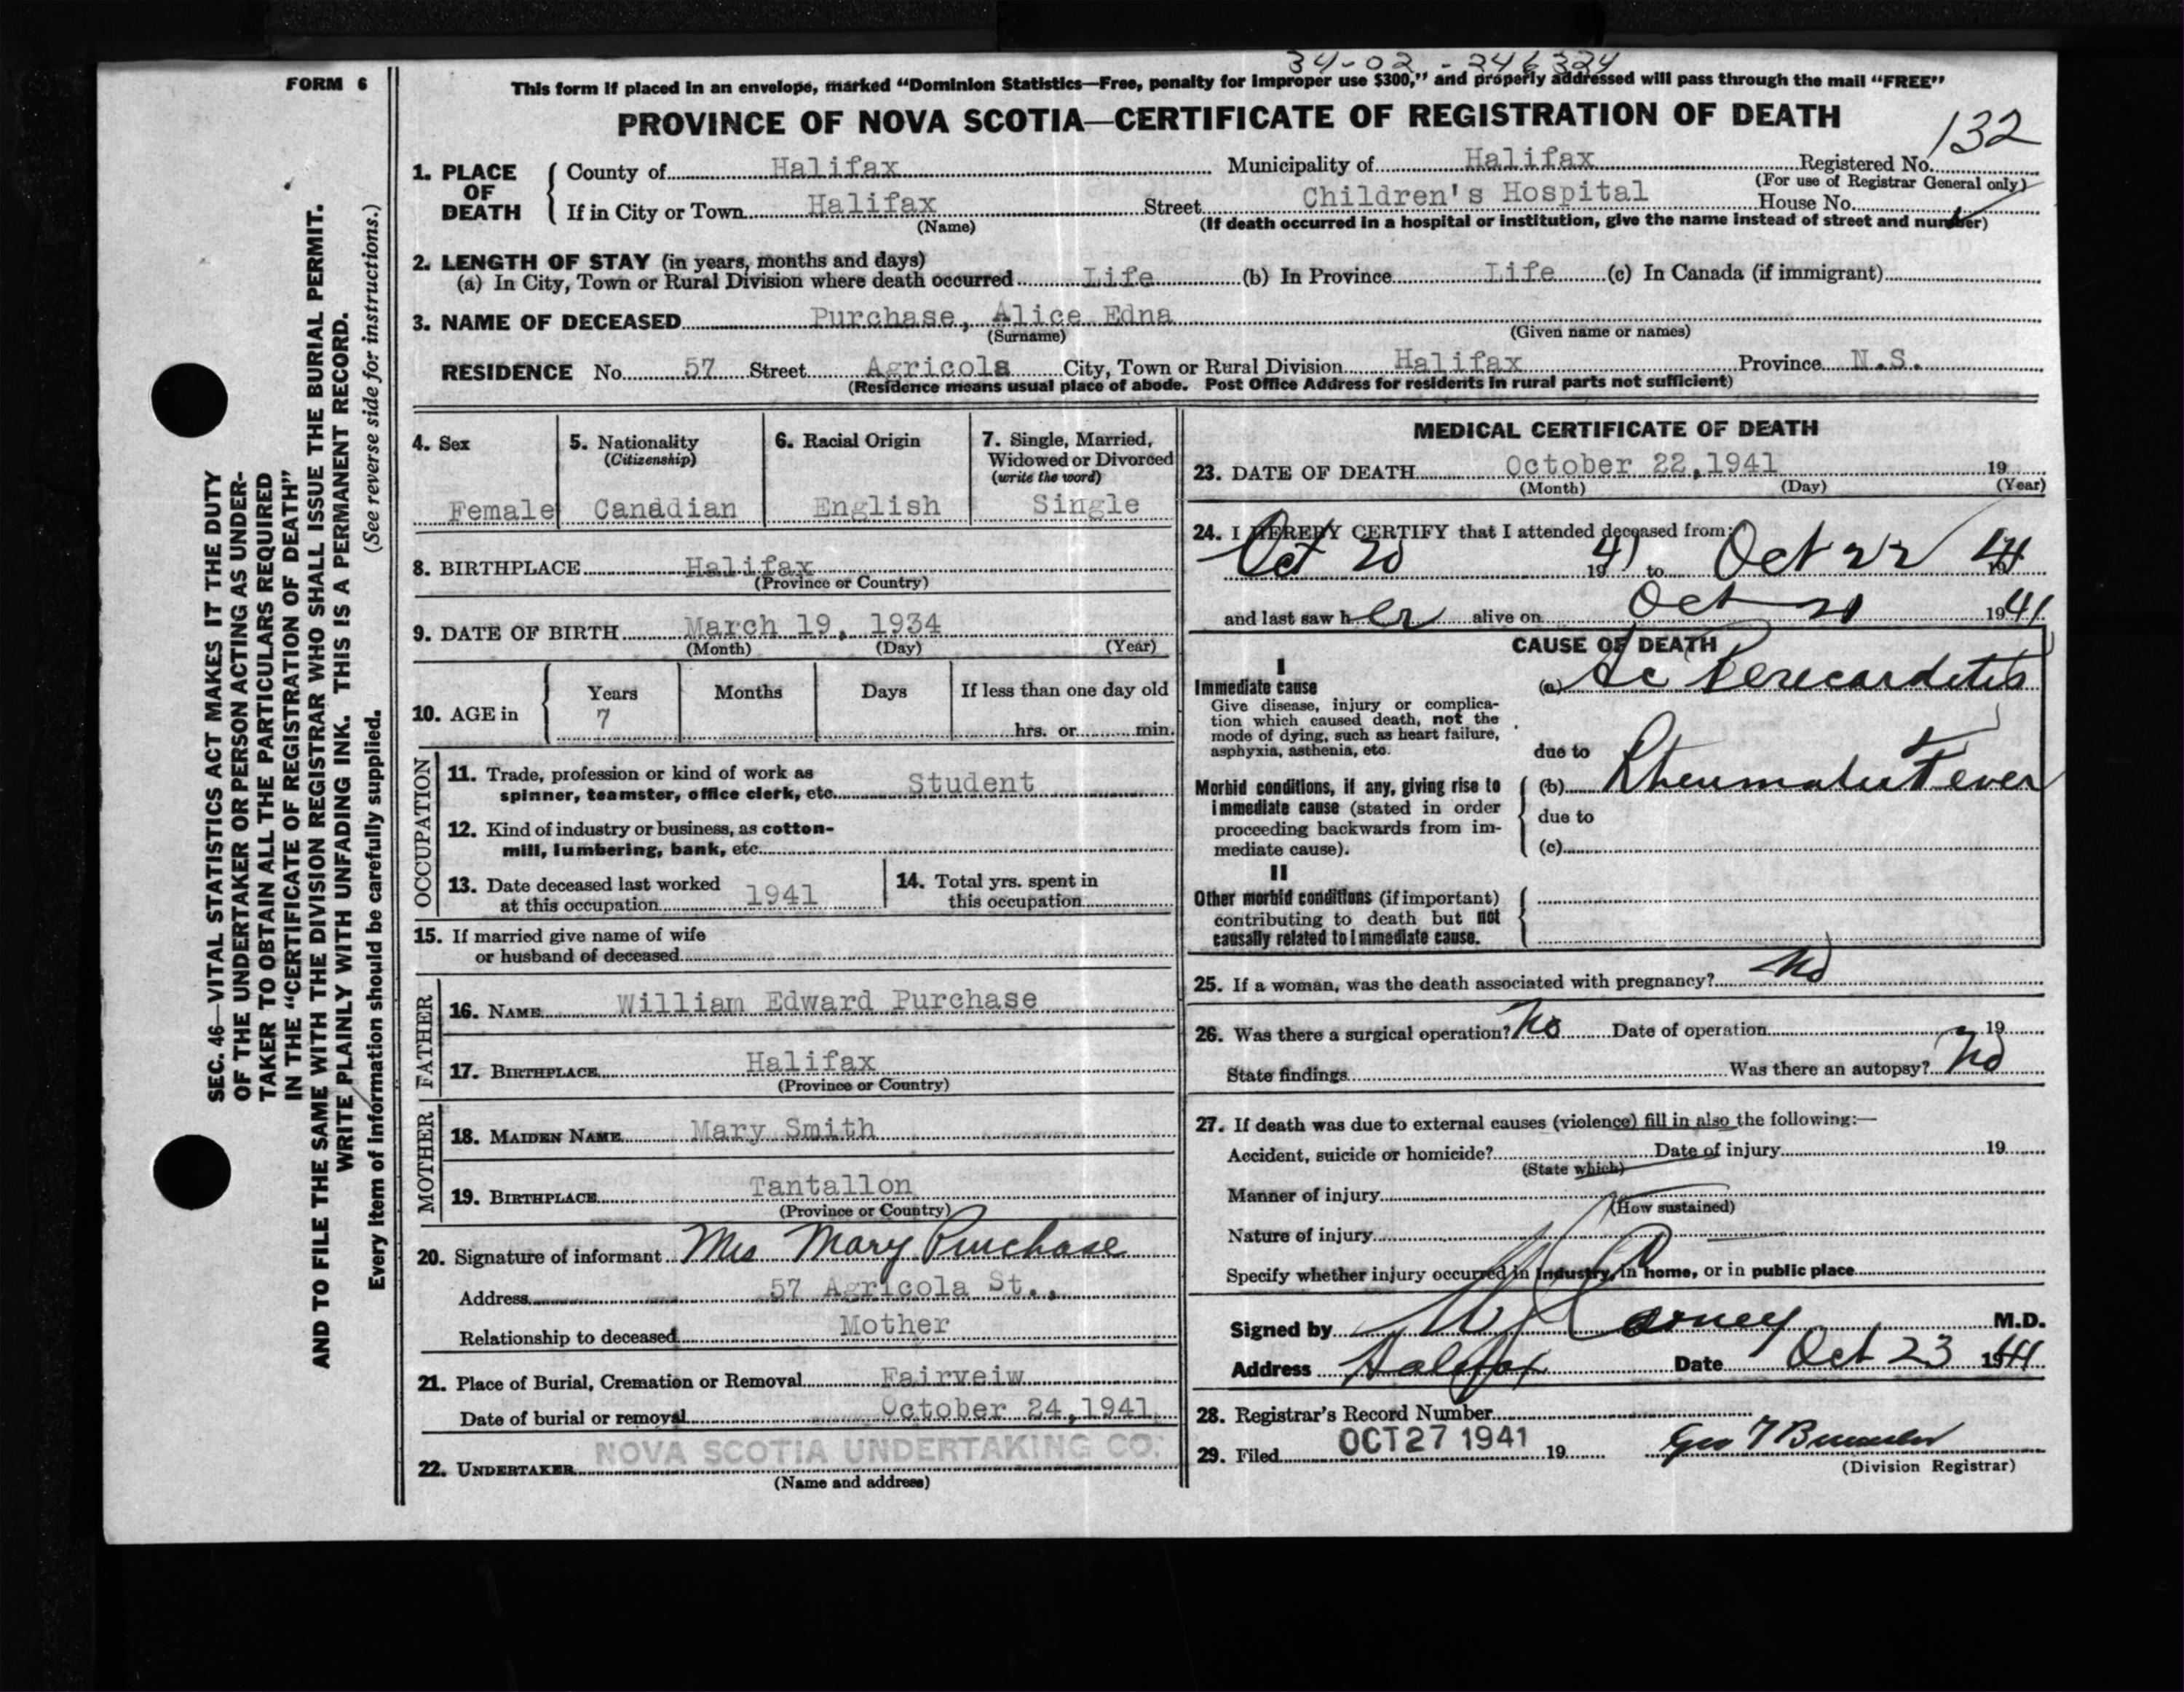 34-02-246324
FORM 6
This form if placed in an envelope, marked "Dominion Statistics—Free, penalty for improper use $300," and properly addressed will pass through the mail "FREE"
PROVINCE OF NOVA SCOTIA—CERTIFICATE OF REGISTRATION OF DEATH
132
1. PLACE OF DEATH
County of Halifax Municipality of Halifax Registered No.
(For use of Registrar General only)
If in City or Town Halifax Street Children's Hospital House No.
(Name) (If death occurred in a hospital or institution, give the name instead of street and number)
2. LENGTH OF STAY (in years, months and days)
(a) In City, Town or Rural Division where death occurred Life (b) In Province Life (c) In Canada (if immigrant)
3. NAME OF DECEASED Purchase, Alice Edna
(Surname) (Given name or names)
RESIDENCE No. 57 Street Agricola City, Town or Rural Division Halifax Province N.S.
(Residence means usual place of abode. Post Office Address for residents in rural parts not sufficient)
4. Sex
Female
5. Nationality
(Citizenship)
Canadian
6. Racial Origin
English
7. Single, Married,
Widowed or Divorced
(write the word)
Single
8. BIRTHPLACE Halifax
(Province or Country)
9. DATE OF BIRTH March 19, 1934
(Month) (Day) (Year)
10. AGE in
Years Months Days If less than one day old
7
hrs. or min.
OCCUPATION
11. Trade, profession or kind of work as
spinner, teamster, office clerk, etc. Student
12. Kind of industry or business, as cotton-
mill, lumbering, bank, etc.
13. Date deceased last worked
at this occupation 1941
14. Total yrs. spent in
this occupation
15. If married give name of wife
or husband of deceased
FATHER
16. NAME William Edward Purchase
17. BIRTHPLACE Halifax
(Province or Country)
MOTHER
18. MAIDEN NAME Mary Smith
19. BIRTHPLACE Tantallon
(Province or Country)
20. Signature of informant Mrs Mary Purchase
Address 57 Agricola St.,
Relationship to deceased Mother
21. Place of Burial, Cremation or Removal Fairveiw
Date of burial or removal October 24, 1941
22. UNDERTAKER NOVA SCOTIA UNDERTAKING CO.
(Name and address)
MEDICAL CERTIFICATE OF DEATH
23. DATE OF DEATH October 22, 1941 19
(Month) (Day) (Year)
24. I HEREBY CERTIFY that I attended deceased from:
Oct 20 1941 to Oct 22 1941
and last saw her alive on Oct 21 1941
CAUSE OF DEATH
I
Immediate cause
Give disease, injury or complica-
tion which caused death, not the
mode of dying, such as heart failure,
asphyxia, asthenia, etc.
(a) Ac Perecardetis
due to
Morbid conditions, if any, giving rise to
immediate cause (stated in order
proceeding backwards from im-
mediate cause).
(b) Rheumatic Fever
due to
(c)
II
Other morbid conditions (if important)
contributing to death but not
causally related to immediate cause.
25. If a woman, was the death associated with pregnancy? No
26. Was there a surgical operation? No Date of operation 19
State findings Was there an autopsy? No
27. If death was due to external causes (violence) fill in also the following:—
Accident, suicide or homicide? Date of injury 19
(State which)
Manner of injury
(How sustained)
Nature of injury
Specify whether injury occurred in industry, in home, or in public place
Signed by Carney M.D.
Address Halifax Date Oct 23 1941
28. Registrar's Record Number
29. Filed OCT 27 1941 19
(Division Registrar)
SEC. 46—VITAL STATISTICS ACT MAKES IT THE DUTY
OF THE UNDERTAKER OR PERSON ACTING AS UNDER-
TAKER TO OBTAIN ALL THE PARTICULARS REQUIRED
IN THE "CERTIFICATE OF REGISTRATION OF DEATH"
AND TO FILE THE SAME WITH THE DIVISION REGISTRAR WHO SHALL ISSUE THE BURIAL PERMIT.
WRITE PLAINLY WITH UNFADING INK. THIS IS A PERMANENT RECORD.
Every item of information should be carefully supplied. (See reverse side for instructions.)